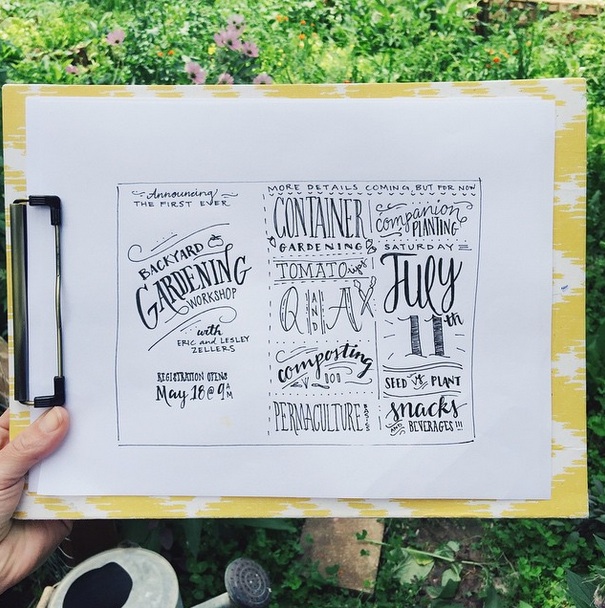 Announcing
THE FIRST EVER
BACKYARD
GARDENING
WORKSHOP
with
ERIC and LESLEY
ZELLERS
REGISTRATION OPENS
May 18 @ 9 AM
MORE DETAILS COMING, BUT FOR NOW
CONTAINER
GARDENING
TOMATO tips
Q AND A
composting
PERMACULTURE BASICS
companion
PLANTING
SATURDAY
JULY
11th
SEED vs PLANT
snacks
AND BEVERAGES!!!